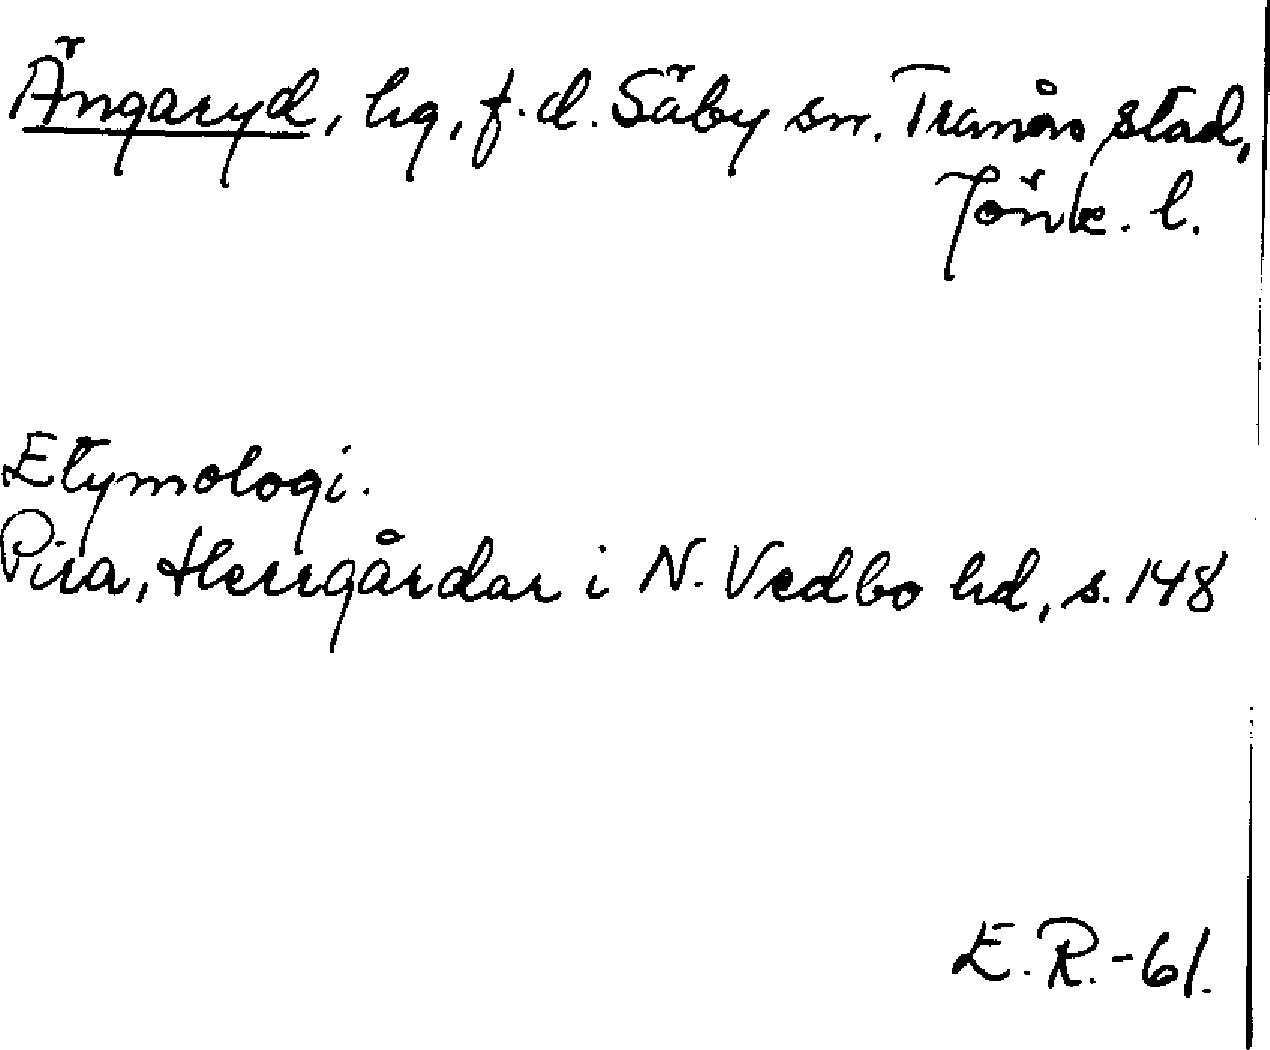 Ängaryd, hg, f.d. Säby sn. Tranås stad,
Jönk. l.
Etymologi.
Pira, Herrgårdar i N. Vedbo hd, s. 148
E.R.-61.